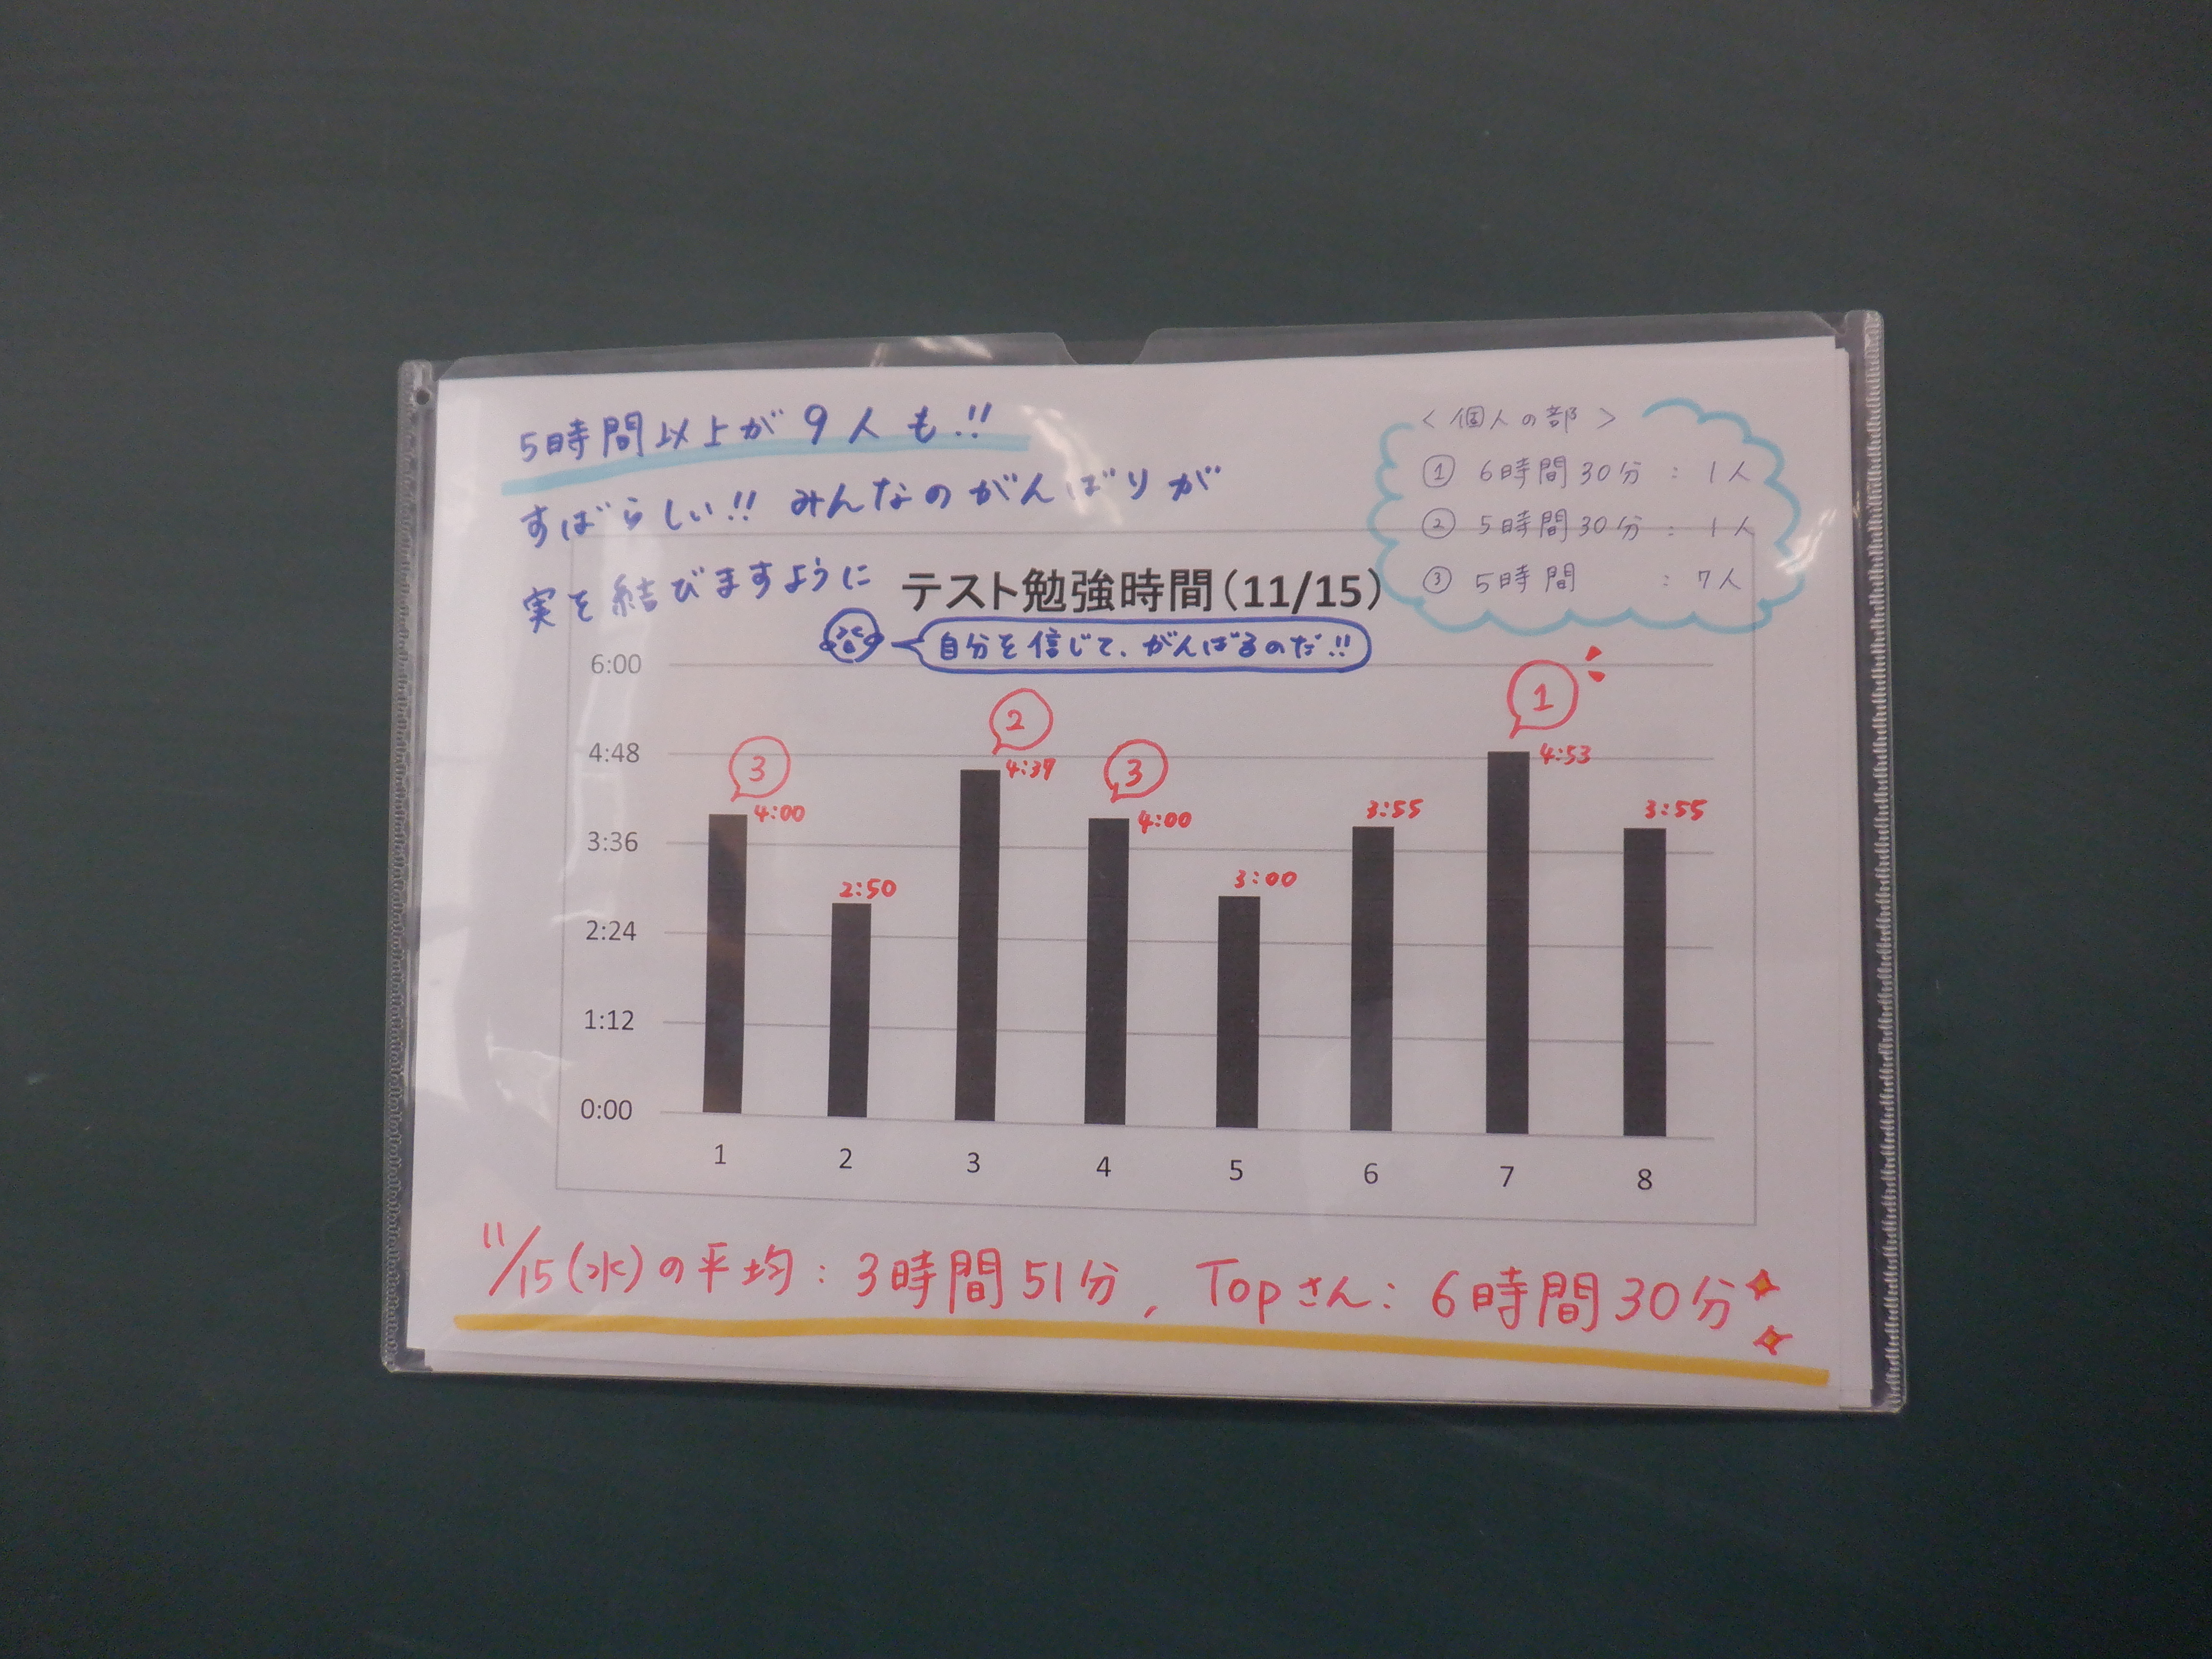 5時間以上が9人も!!
すばらしい!! みんなのがんばりが
実を結びますように
<個人の部>
① 6時間30分 : 1人
② 5時間30分 : 1人
③ 5時間 : 7人
テスト勉強時間(11/15)
自分を信じて、がんばるのだ!!
6:00
4:48
3:36
2:24
1:12
0:00
3
4:00
2:50
2
4:39
3
4:00
3:00
3:55
1
4:53
3:55
1 2 3 4 5 6 7 8
11/15(水)の平均: 3時間51分, Topさん: 6時間30分